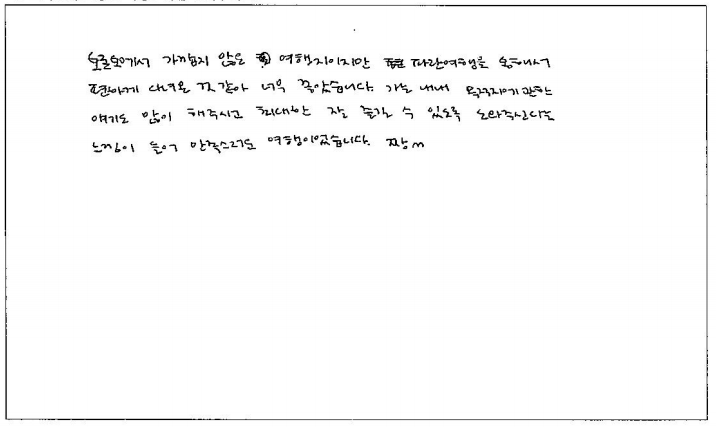 오슬로에서 가깝지 않은 여행지이지만 파란여행을 통해서
편하게 다녀온 것 같아 너무 좋았습니다. 가는 내내 목적지에 관한
얘기도 많이 해주시고 최대한 잘 즐길 수 있도록 도와주신다는
느낌이 들어 만족스러운 여행이었습니다. 짱